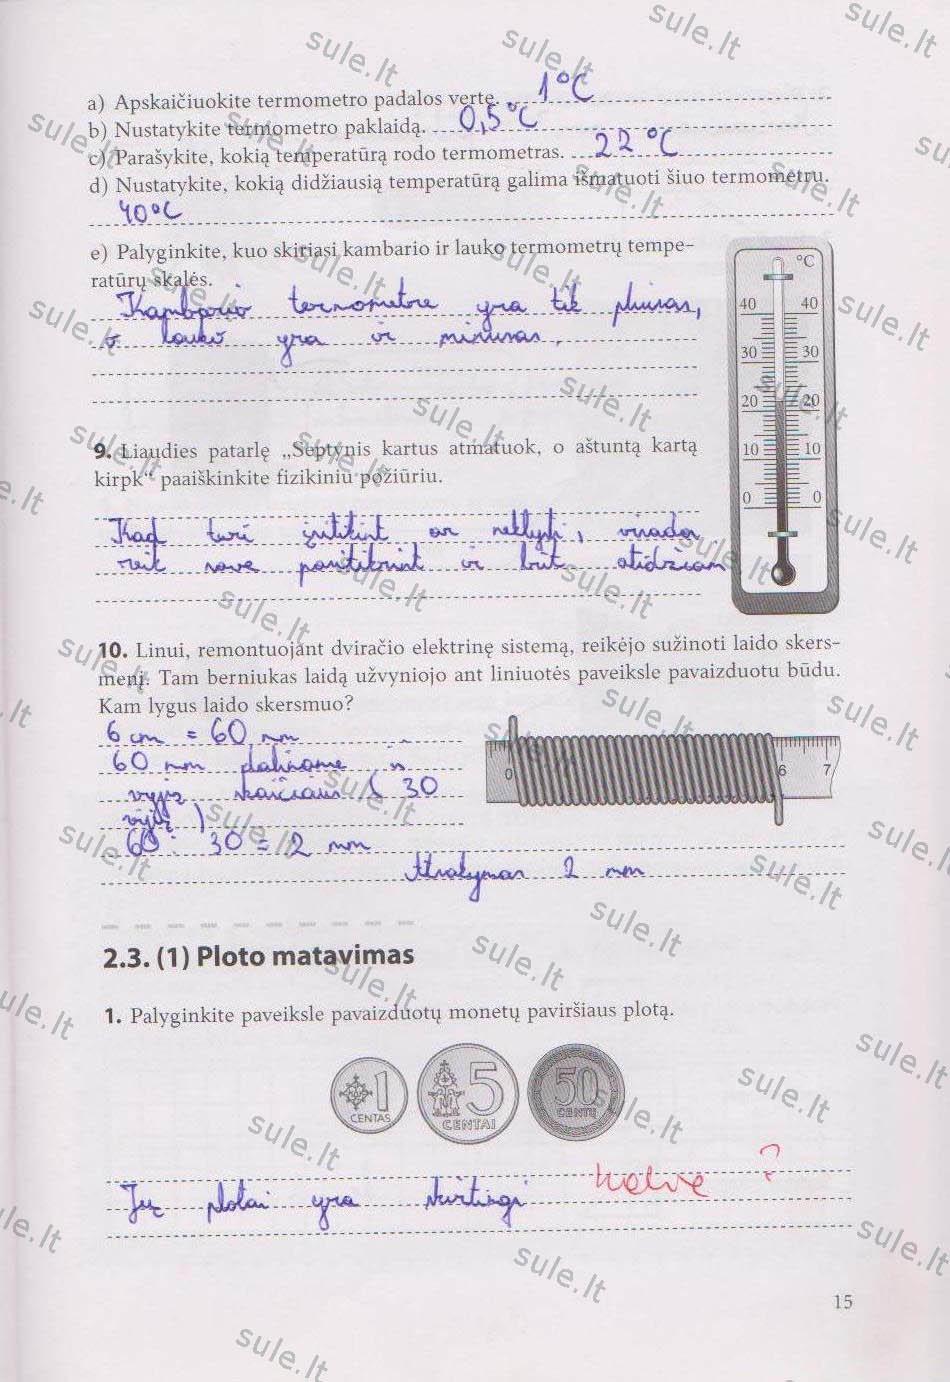 a) Apskaičiuokite termometro padalos vertę. 1°C
b) Nustatykite termometro paklaidą. 0,5°C
c) Parašykite, kokią temperatūrą rodo termometras. 22°C
d) Nustatykite, kokią didžiausią temperatūrą galima išmatuoti šiuo termometru.
40°C
e) Palyginkite, kuo skiriasi kambario ir lauko termometrų tempe-
ratūrų skalės.
Kambario termometre yra tik pliusas,
o lauko yra ir minusas.
°C
40 40
30 30
20 20
10 10
0 0
9. Liaudies patarlę „Septynis kartus atmatuok, o aštuntą kartą
kirpk“ paaiškinkite fizikiniu požiūriu.
Kad turi įsitikint ar neklysti, visada
reik save pasitikrint ir būt atidžiam
10. Linui, remontuojant dviračio elektrinę sistemą, reikėjo sužinoti laido skers-
menį. Tam berniukas laidą užvyniojo ant liniuotės paveiksle pavaizduotu būdu.
Kam lygus laido skersmuo?
6 cm = 60 mm
60 mm daliname iš
vijų skaičiaus ( 30
vijų )
60 : 30 = 2 mm
Atsakymas 2 mm
0 6 7
2.3. (1) Ploto matavimas
1. Palyginkite paveiksle pavaizduotų monetų paviršiaus plotą.
1 CENTAS
5 CENTAI
50 CENTŲ
Jų plotai yra skirtingi
?
15
sule.lt